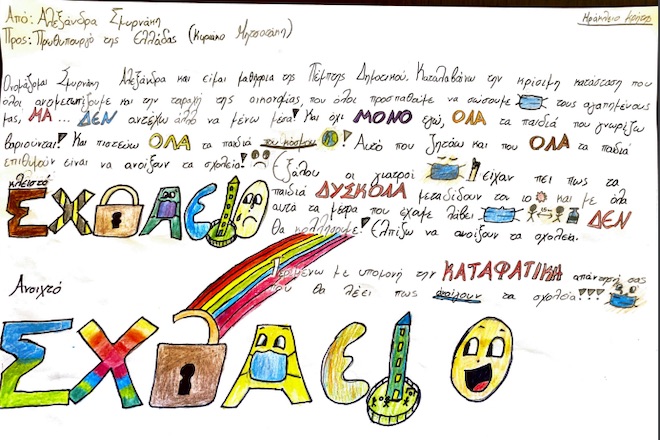 Από: Αλεξάνδρα Σμυρνάκη
Ηράκλειο Κρήτης
Προς: Πρωθυπουργό της Ελλάδας (Κυριάκο Μητσοτάκη)
Ονομάζομαι Σμυρνάκη Αλεξάνδρα και είμαι μαθήτρια της Πέμπτης Δημοτικού. Καταλαβαίνω την κρίσιμη κατάσταση που
όλοι αντιμετωπίζουμε και την ταραχή της οικονομίας, που όλοι προσπαθείτε να σώσουμε τους αγαπημένους
μας, ΜΑ ... ΔΕΝ αντέχω άλλο να μένω μέσα! Και όχι ΜΟΝΟ εγώ, ΟΛΑ τα παιδιά που γνωρίζω
βαριούνται! Και πιστεύω ΟΛΑ τα παιδιά του κόσμου! Αυτό που ζητάω και που ΟΛΑ τα παιδιά
επιθυμούν είναι να ανοίξουν τα σχολεία! Εξάλλου οι γιατροί είχαν πει πως τα
κλειστό
παιδιά ΔΥΣΚΟΛΑ μεταδίδουν τον ιο και με όλα
ΣΧΟΛΕΙΟ
αυτά τα μέτρα που έχουμε λάβει ΔΕΝ
θα κολλήσουμε! Ελπίζω να ανοίξουν τα σχολεία.
Περιμένω με υπομονή την ΚΑΤΑΦΑΤΙΚΗ απάντησή σας
Ανοιχτό
που θα λέει πως ανοίγουν τα σχολεία!!!
ΣΧΟΛΕΙΟ